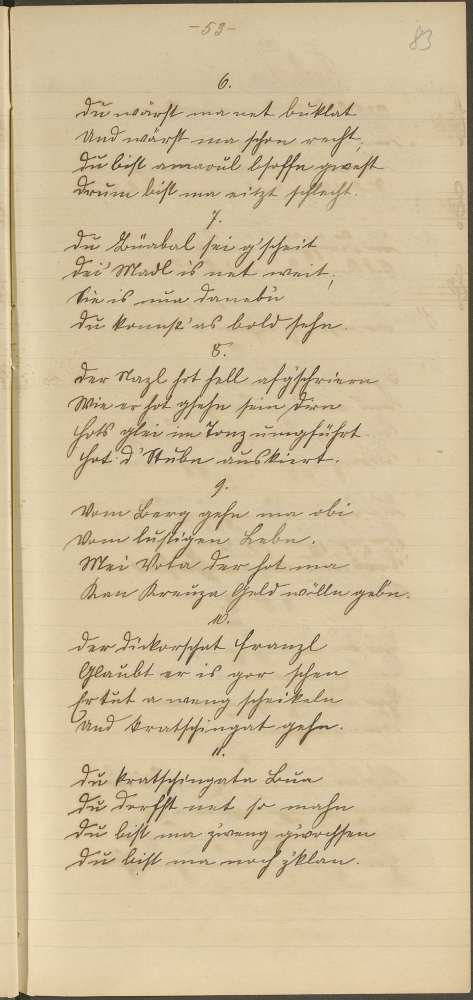 -53-
83
6.
Du warst ma net buklat
Und warst ma schon recht,
Du bist amaoul bsoffn gwest
Drum bist ma eitzt schlecht.
7.
Du Büabal sei g'scheit
Dei Madl is net weit;
Sie is nua danebn
Du konnst' as bold sehn.
8.
Der Nazl hot hell afgschriern
Wie er hot gsehn sein Dirn
Hots glei im Tonz umgführt
Hot d' Stubn auskiert.
9.
Vom Berg gehn ma obi
Vom lustigen Lebn.
Mei Vota der hot ma
Kan Kreuza Geld wölln gebn.
10.
Der dickorschat Franzl
Glaubt er is gor schen
Er tut a weng scheikeln
Und kratschingat gehn.
11.
Du kratschingata Bua
Du derfst net so mahn
Du bist ma z'weng gwochsen
Du bist ma noch z'klan.